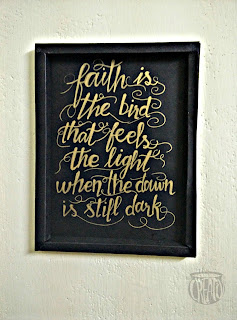 faith is
the bird
that feels
the light
when the dawn
is still dark
CREATE